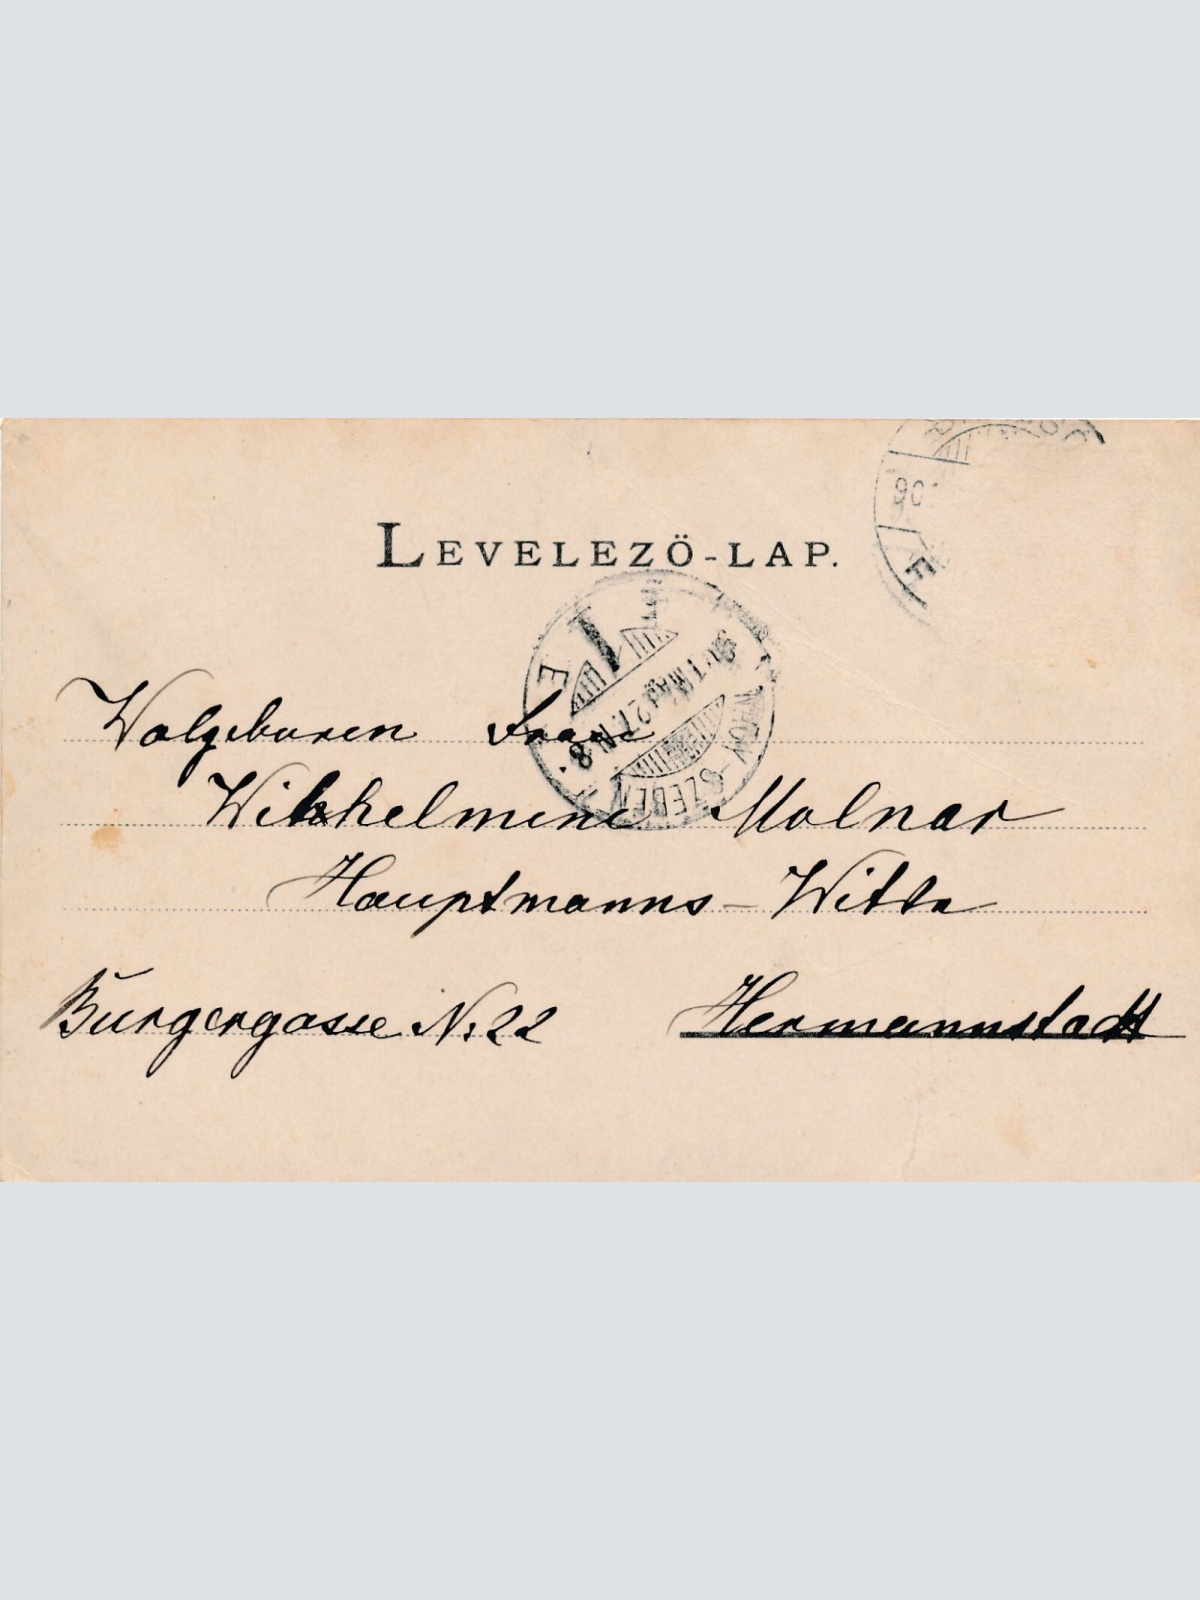 LEVELEZÖ-LAP.
Wolgeburen Frau
Wilhelmine Molnar
Hauptmanns - Witve
Burgergasse N: 22
Hermannstadt
NAGY-SZEBEN
E
1
F